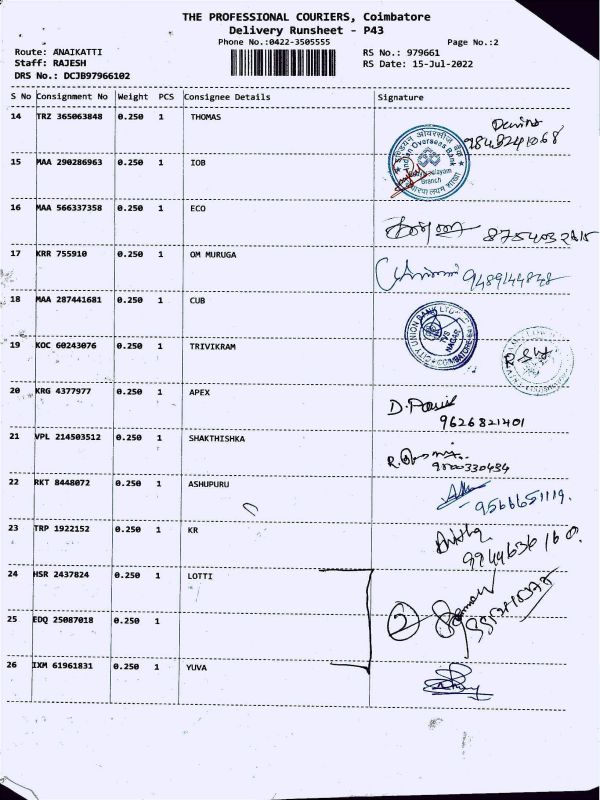 THE PROFESSIONAL COURIERS, Coimbatore
Delivery Runsheet - P43
Phone No.:0422-3505555 Page No.:2
Route: ANAIKATTI RS No.: 979661
Staff: RAJESH RS Date: 15-Jul-2022
DRS No.: DCJB97966102
S No Consignment No Weight PCS Consignee Details Signature
14 TRZ 365063848 0.250 1 THOMAS
15 MAA 290286963 0.250 1 IOB
16 MAA 566337358 0.250 1 ECO
17 KRR 755910 0.250 1 OM MURUGA
9489144848
18 MAA 287441681 0.250 1 CUB
CITY UNION BANK LTD
TVS NAGAR
COIMBATORE
19 KOC 60243076 0.250 1 TRIVIKRAM
20 KRG 4377977 0.250 1 APEX
9626821401
21 VPL 214503512 0.250 1 SHAKTHISHKA
22 RKT 8448072 0.250 1 ASHUPURU
9566651119.
23 TRP 1922152 0.250 1 KR
9944636160.
24 HSR 2437824 0.250 1 LOTTI
2
25 EDQ 25087018 0.250 1
26 IXM 61961831 0.250 1 YUVA